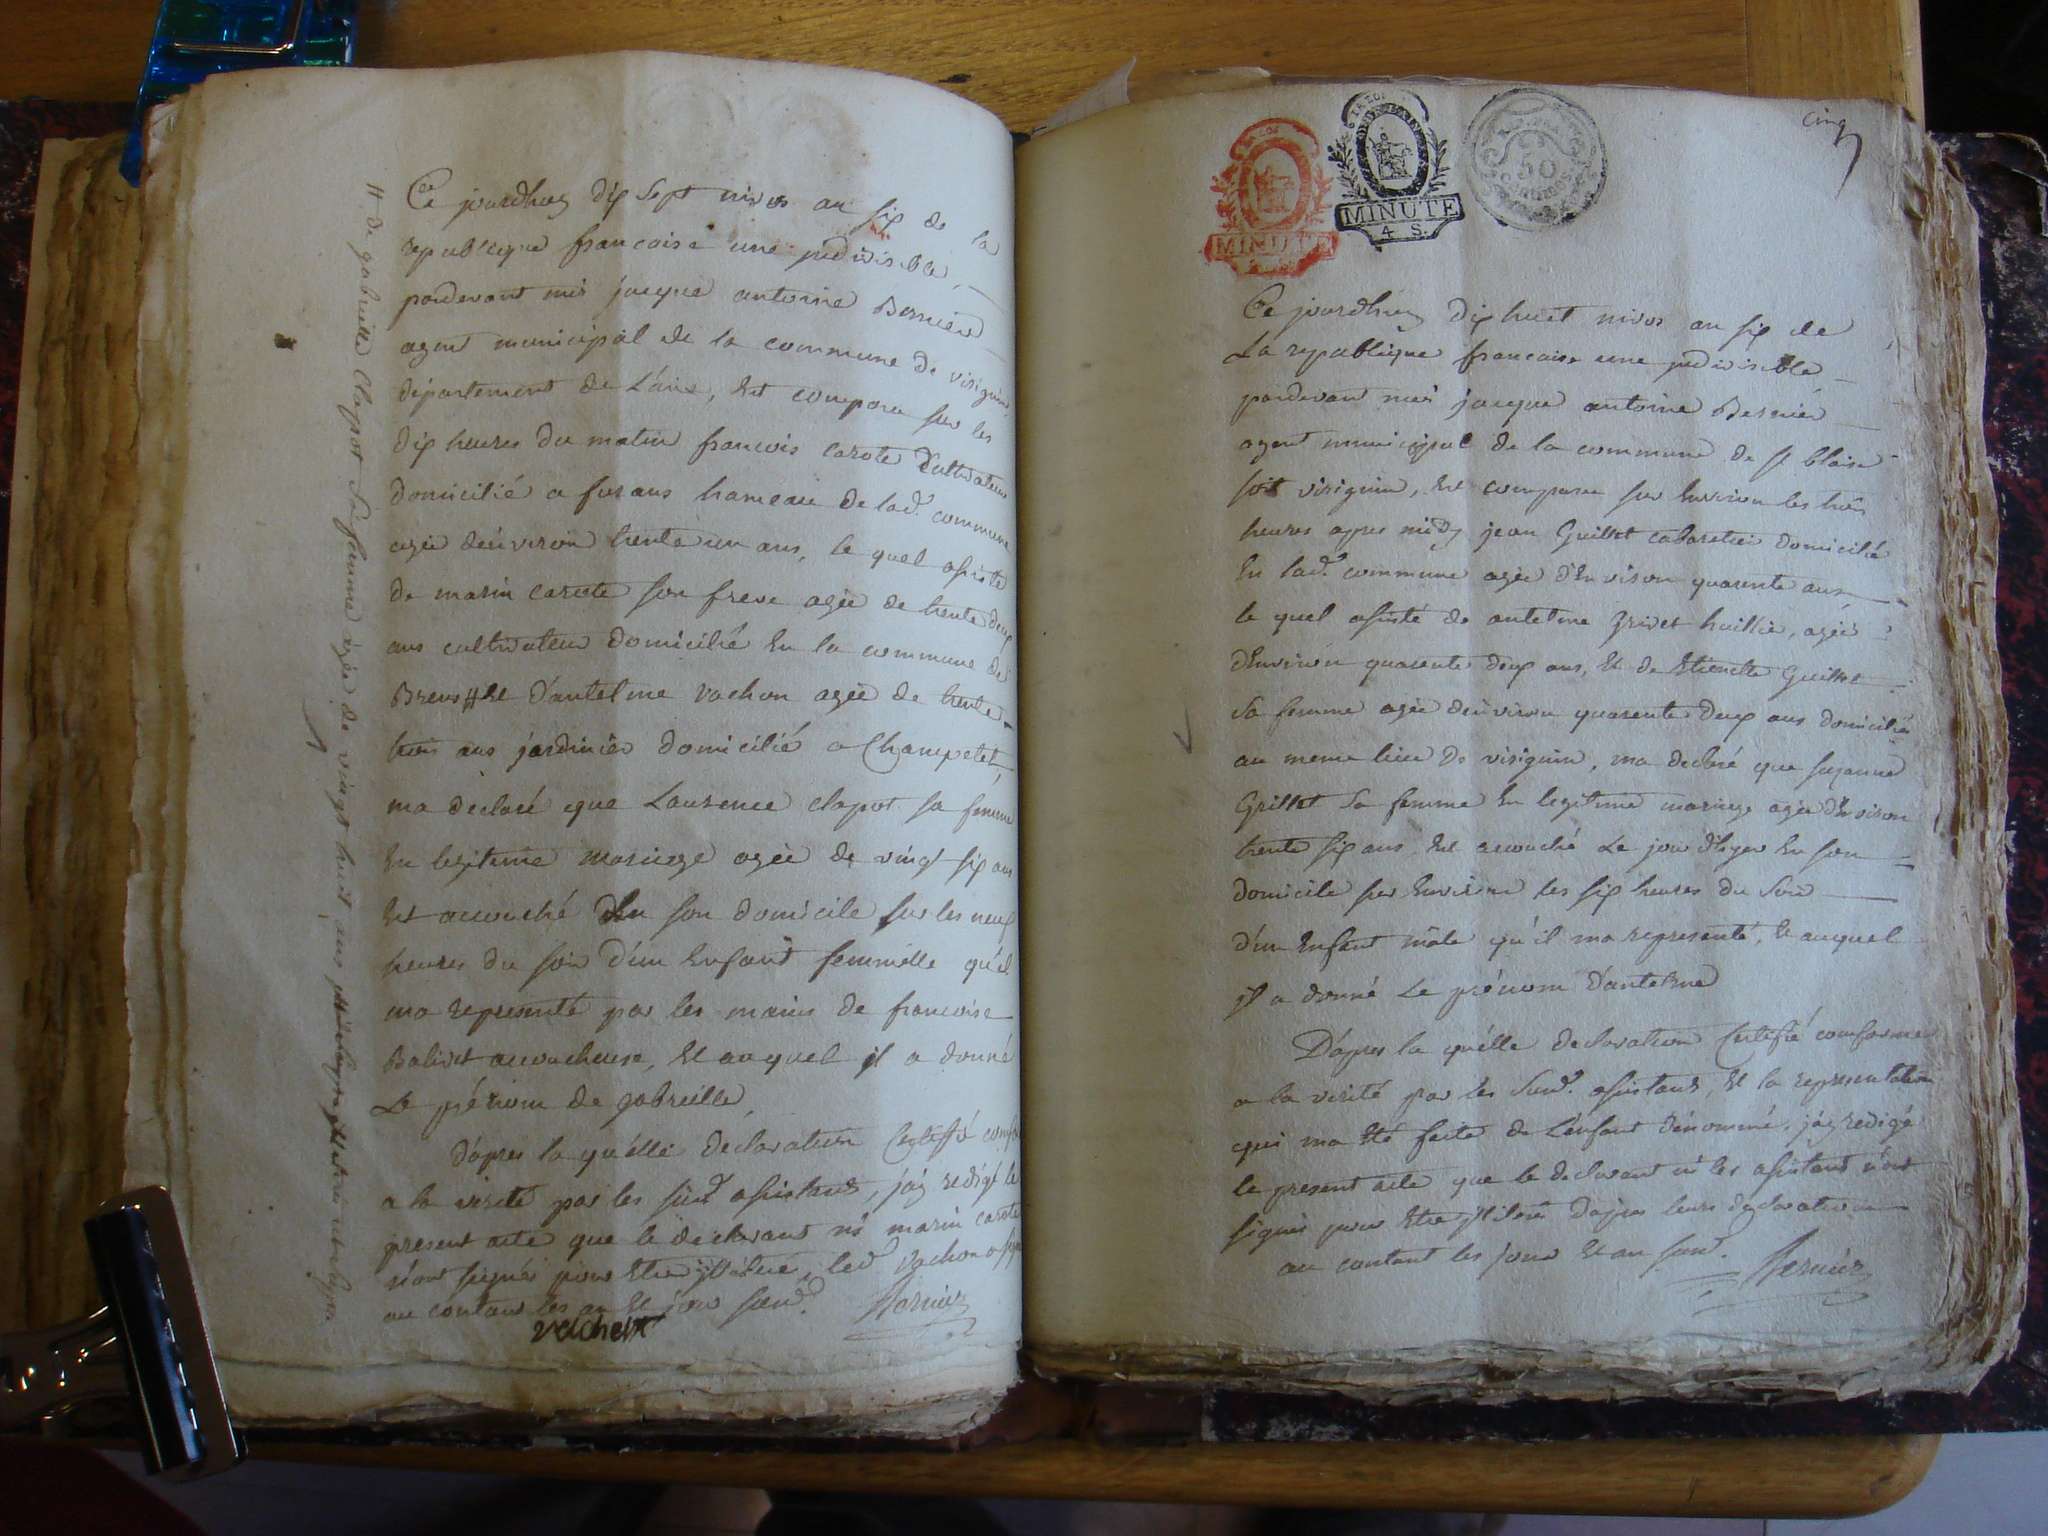 Ce jourdhuy dix sept nivos an six de la
republique francaise une indivisible
pardevant moi jacque antoine Bernier
agent municipal de la commune de virignin
département de L'ain, Est comparu sur les
dix heures du matin francois carote Cultivateur
domicilié a furans hameau de lad. commune
agée denviron trente un ans, le quel assisté
de marin carote son frere agée de trente deux
ans cultivateur domicilié En la commune de
Brens # Et D'antelme vachon agée de trente
trois ans jardinier domicilié a Champetel,
ma déclaré que Laurence clapot sa femme
En legitime mariage agée de vingt six ans
Est accouché En son domicile sur les neuf
heures du soir D'un Enfant femmelle qu'il
ma representé par les mains de francoise
Balivet accoucheuse, Et auquel il a donné
Le prénom de gabrielle
D'apres la qu'elle declaration Certiffié conforme
a la verité par les susd. assistants, j'ay redigé le
present acte que le declarant ni marin carote
n'ont signés pour Etre illiteré, led. vachon a signé
au contant les an Et jour susd. Bernier
vachon
# de gabrielle Clapot Sa femme agée de vingt huit ans
cinq 5
MINUTE
MINUTE
4 S.
50
CENTIMES
Ce jourdhuy dix huit nivos an six de
La republique francaise une indivisible
pardevant moi jacque antoine Bernier
agent municipal de la commune de st blaise
soit virignin, Est comparu sur Environ les trois
heures apres midy jean Guillot cabaretier domicilié
En lad. commune agée d'Environ quarente ans
le quel assisté de antelme Trivet huillier, agée
d'Environ quarente deux ans, Et de Etienette Guillot
Sa femme agée denviron quarente deux ans domiciliés
au meme lieu de virignin, ma declaré que suzanne
Grillot Sa femme En legitime mariage agée d'Environ
trente six ans Est accouché Le jour d'hyer En son
domicile sur Environ les six heures du Soir
d'un Enfant mâle qu'il ma representé, Et auquel
il a donné Le prénom D'antelme
D'apres la qu'elle declaration Certifié conforme
a la verité par les Susd. assistants, Et la representation
qui ma été faite de L'enfant dénommé, j'ay redigé
le present acte que le declarant ni les assistant n'ont
signés pour Etre illiterés D'apres leurs declaration
au contant les jour Et an susd. Bernier